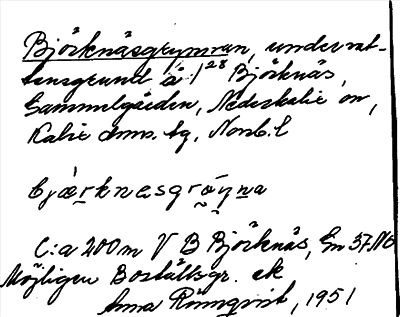 Björknäsgrynnan, undervat-
tensgrund å 1²⁸ Björknäs,
Gammelgården, Nederkalix sn,
Kalix tg, Norrb. l
C:a 200 m V B Björknäs, En 57
Möjligen Boställsgr. ek
Anna Rönnqvist, 1951